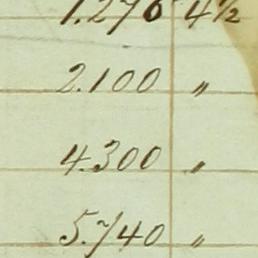 1.276 4½
2.100 "
4.300 "
5.740 "